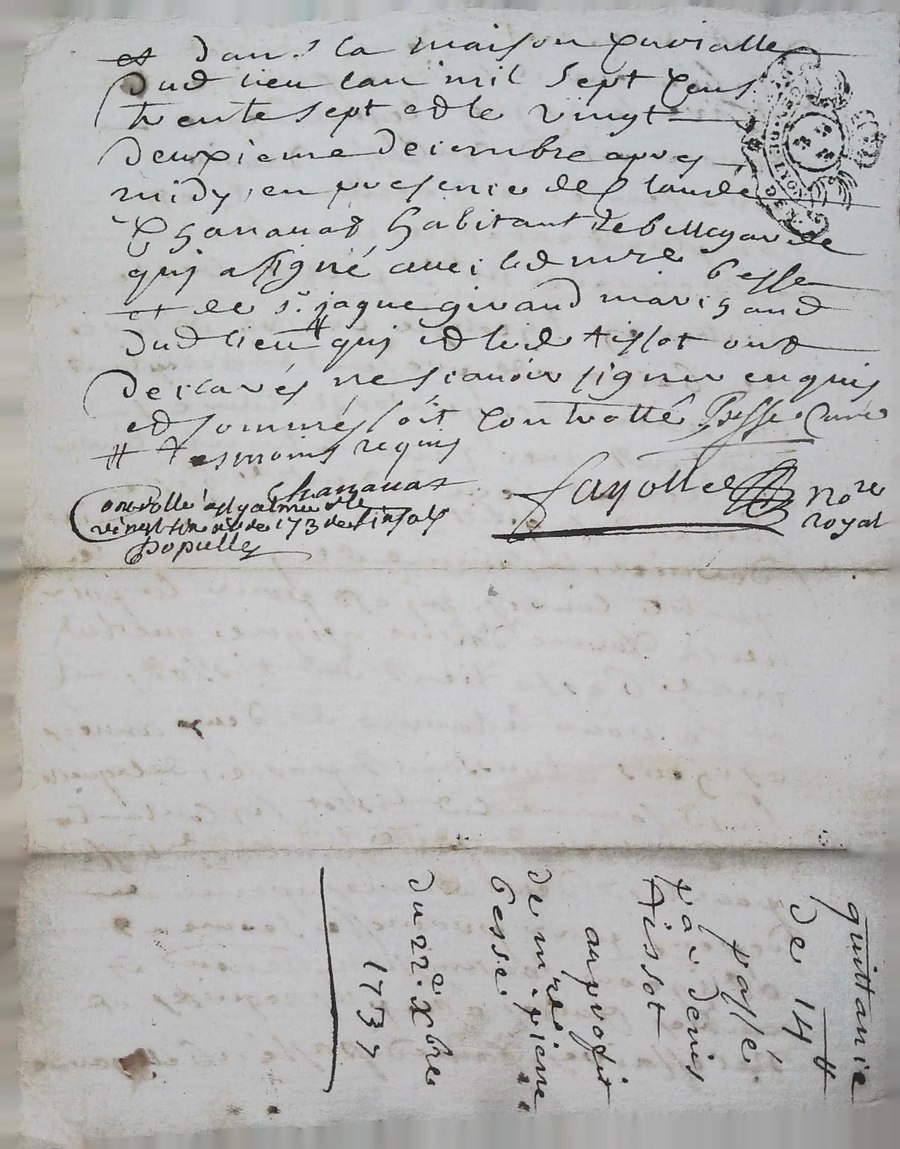 et dans la maison Curialle
dud lieu lan mil sept cens
trente sept et le vingt
deuxieme decembre apres
midy, en presence de Claude
Chanavat habitant de bellegarde
qui a signé avec led mre besse
et de sr. jaque girand marchand
dud lieu # qui et led tissot ont
declarés ne scavoir signer enquis
et sommés soit controllé. Besse Curé
# tesmoins requis
Chanavat
Fayolle Nore royal
controllé a st galmier le
vingt six xbre 1737 dix sols
Populle
GEN DE LYON
quittance
de 14 #
passé.
par denis
tissot
au profit
de mre. pierre
besse.
du 22e. Xbre
1737